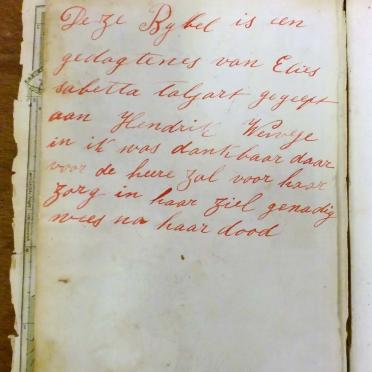 Deze Bybel is een
gedagtenes van Elies
sabetta talgart gegeeft
aan Hendrik
in ik was dankbaar daar
voor de heere zal voor haar
zorg in haar ziel genadig
wees na haar dood